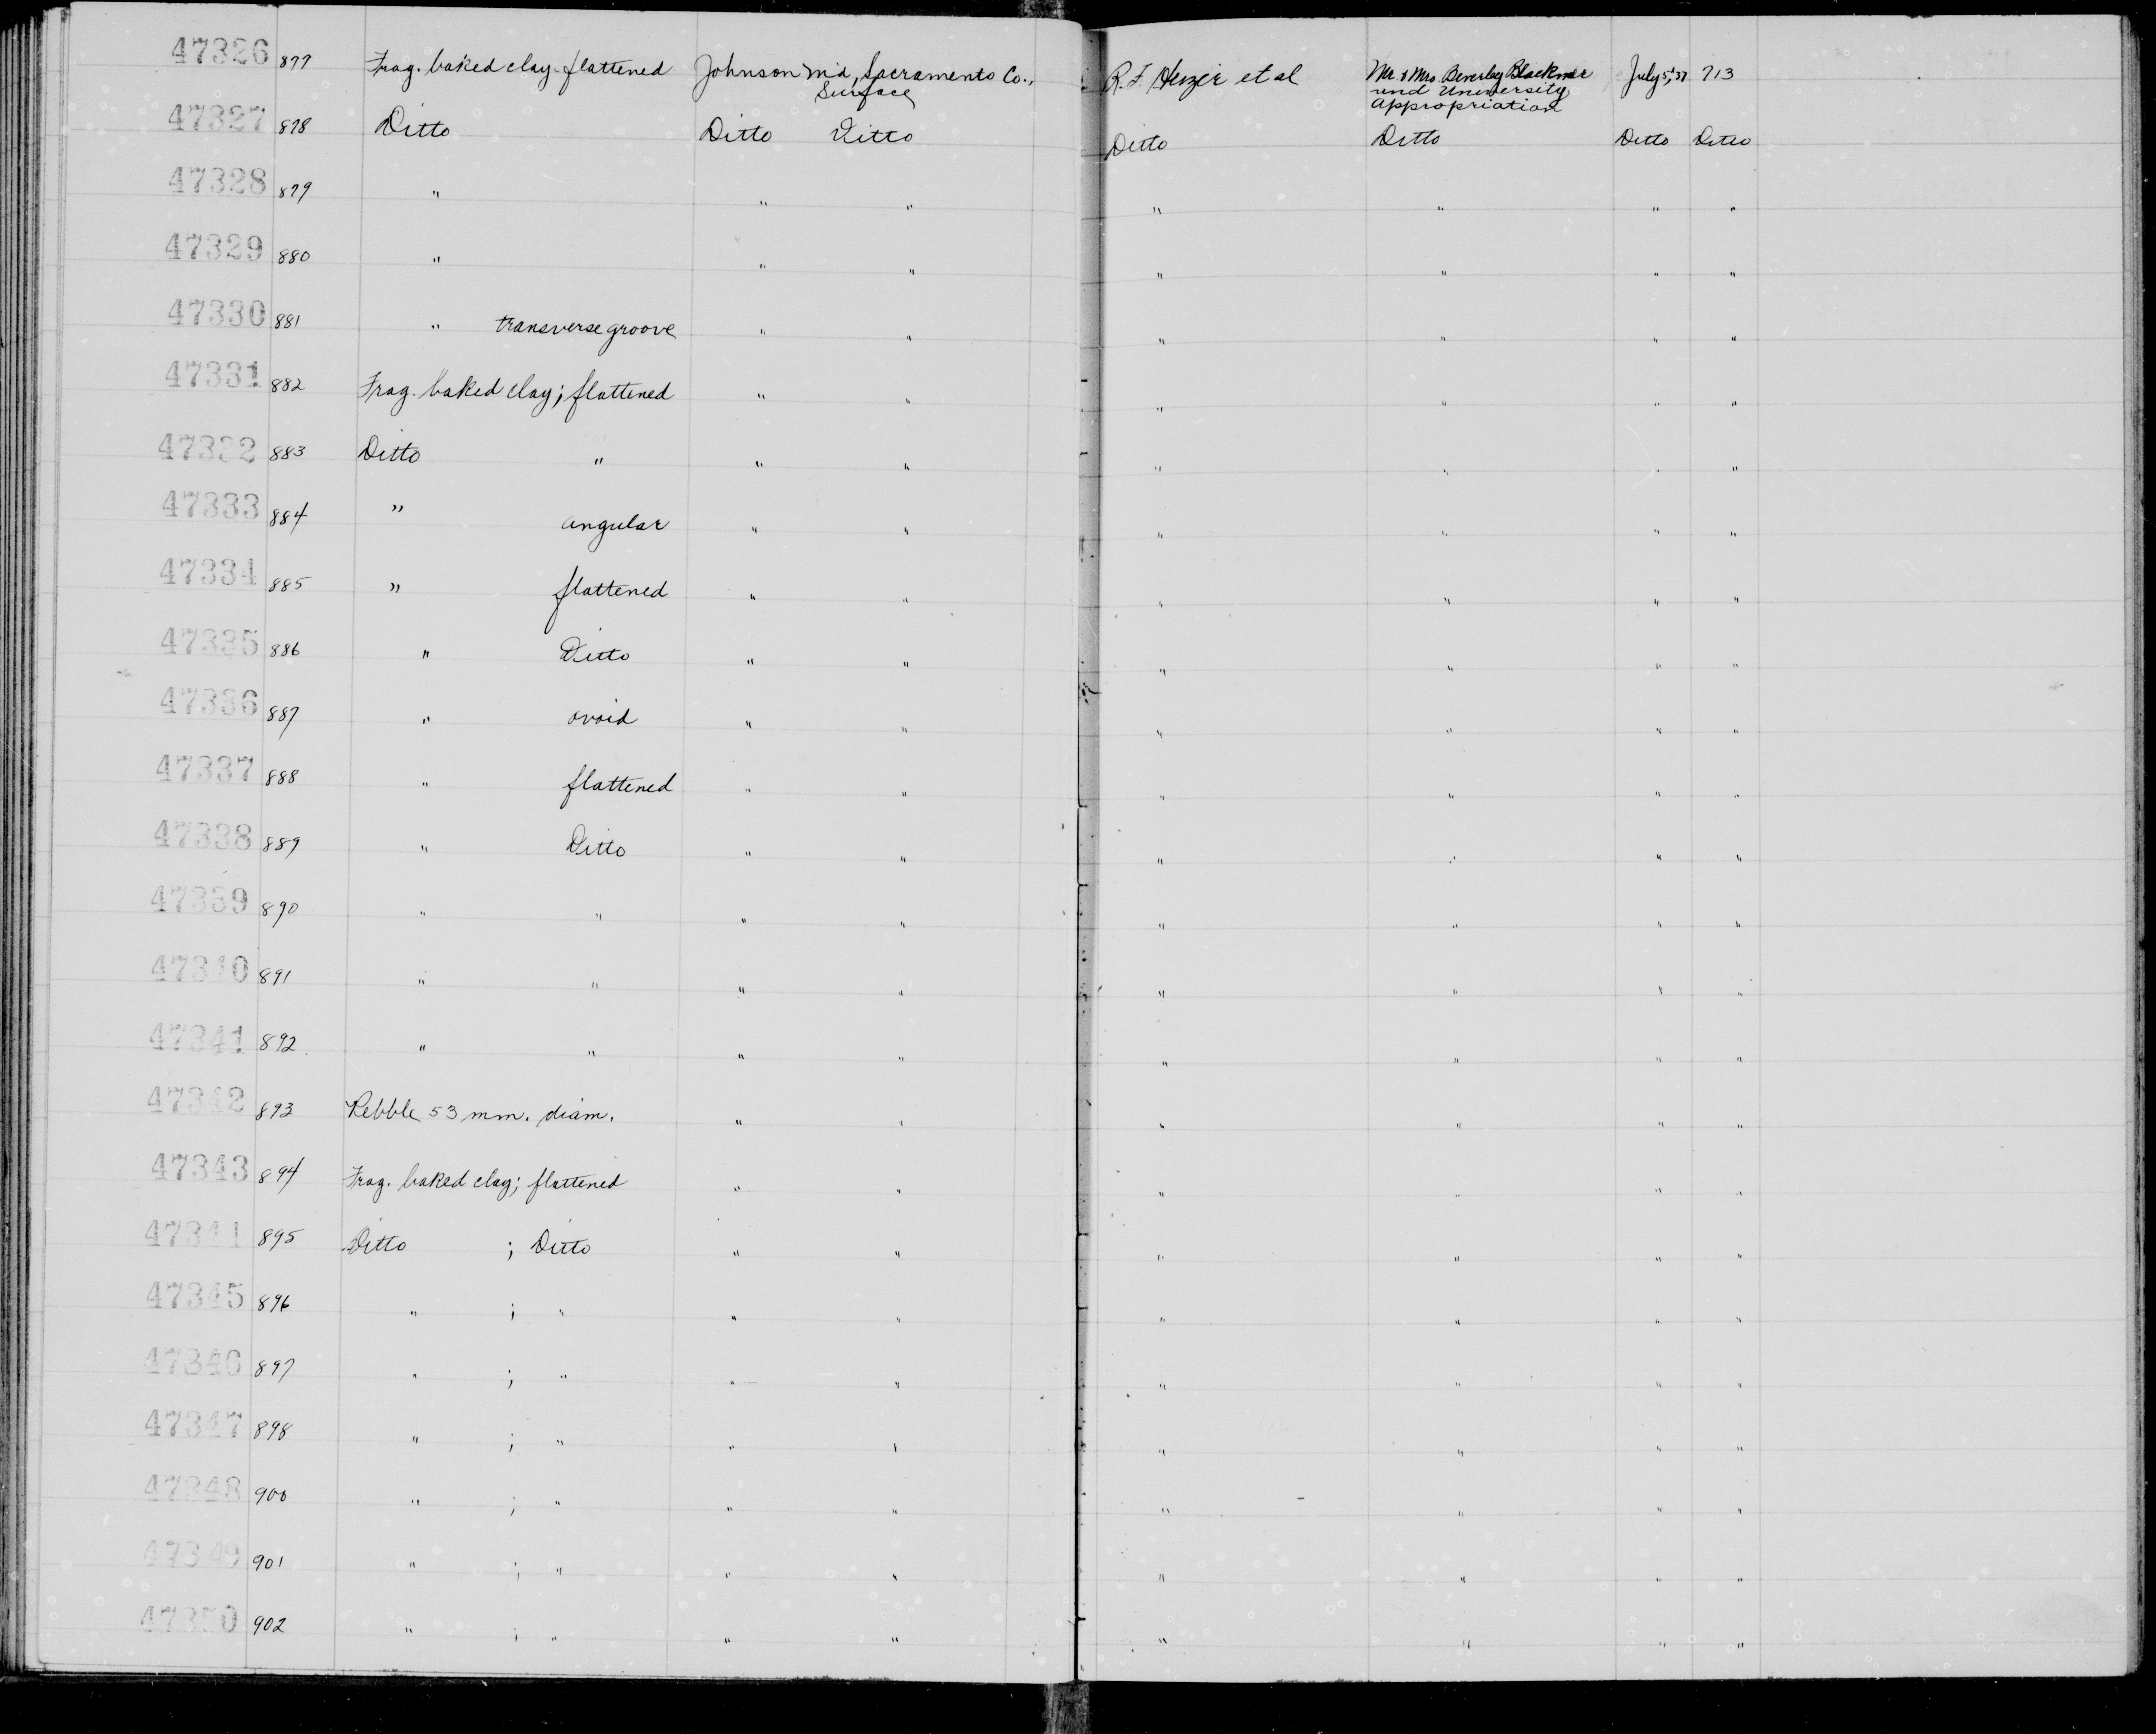 47326 877 Frag. baked clay-flattened Johnson M'd, Sacramento Co., R.F. Heizer et al Mr. & Mrs. Beverley Blackmer July 5, '37 713
Surface and University
Appropriation
47327 878 Ditto Ditto Ditto Ditto Ditto Ditto Ditto
47328 879 " " " " " " "
47329 880 " " " " " " "
47330 881 " transverse groove " " " " " "
47331 882 Frag. baked clay; flattened " " " " " "
47332 883 Ditto " " " " " " "
47333 884 " angular " " " " " "
47334 885 " flattened " " " " " "
47335 886 " Ditto " " " " " "
47336 887 " ovoid " " " " " "
47337 888 " flattened " " " " " "
47338 889 " Ditto " " " " " "
47339 890 " " " " " " " "
47340 891 " " " " " " " "
47341 892 " " " " " " " "
47342 893 Pebble 53 mm. diam. " " " " " "
47343 894 Frag. baked clay; flattened " " " " " "
47344 895 Ditto ; Ditto " " " " " "
47345 896 " ; " " " " " " "
47346 897 " ; " " " " " " "
47347 898 " ; " " " " " " "
47348 900 " ; " " " " " " "
47349 901 " ; " " " " " " "
47350 902 " ; " " " " " " "